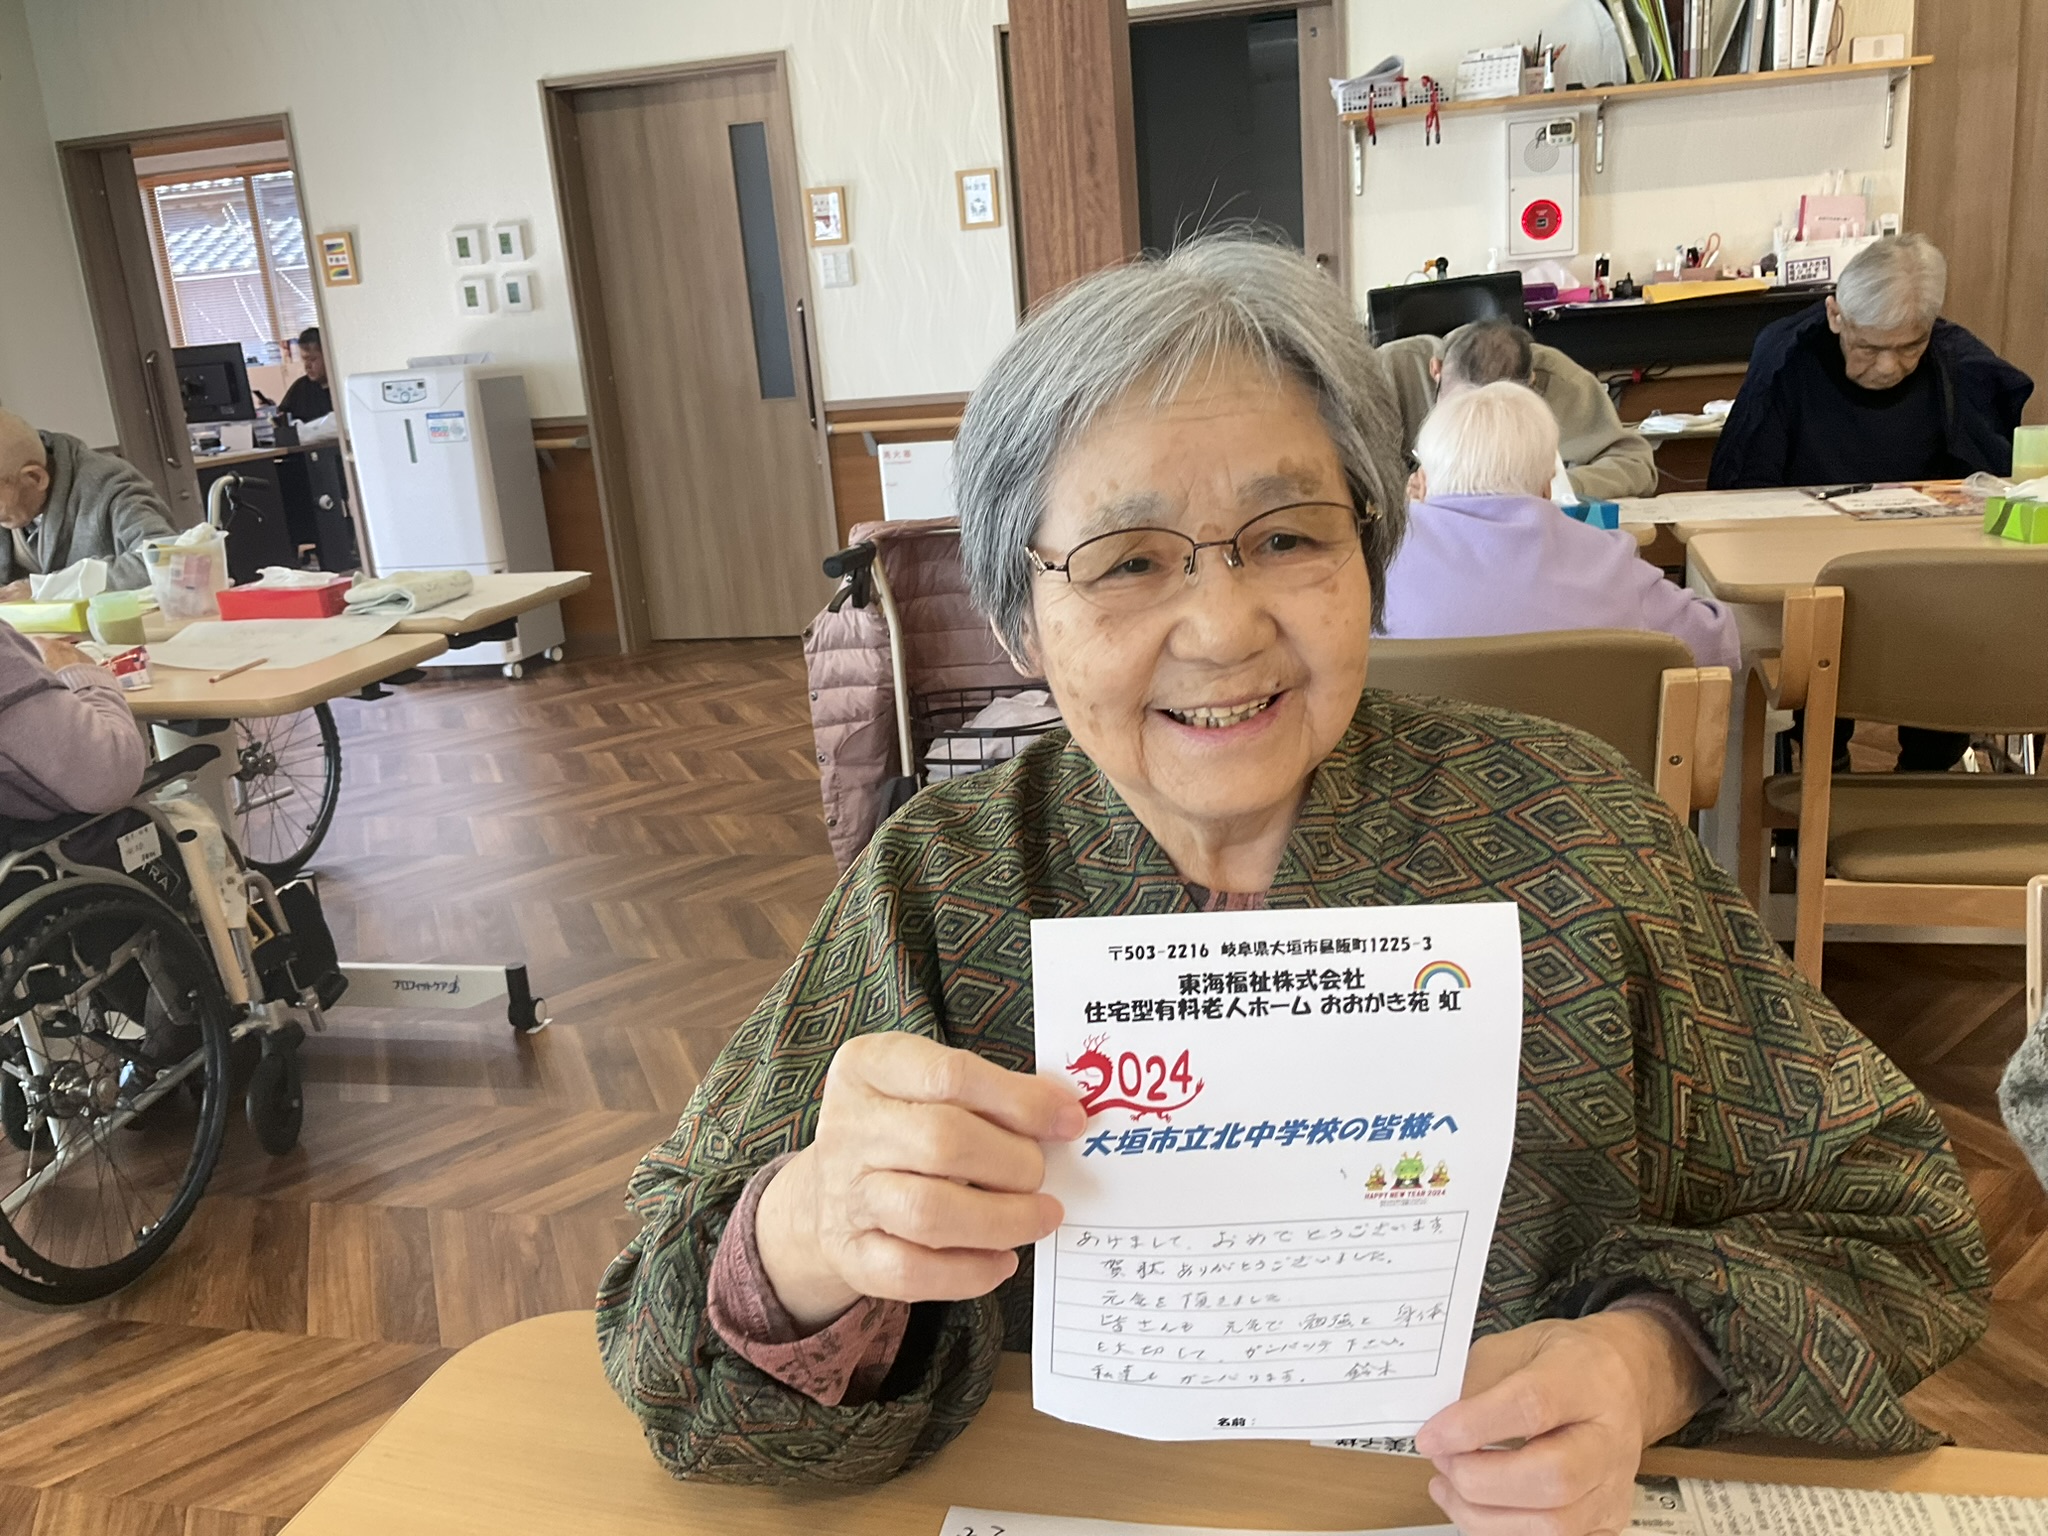 〒503-2216 岐阜県大垣市昼飯町1225-3
東海福祉株式会社
住宅型有料老人ホーム おおがき苑 虹
2024
大垣市立北中学校の皆様へ
HAPPY NEW YEAR 2024
あけまして、おめでとうございます。
賀状ありがとうございました。
元気を頂きました
皆さんも 元気で 勉強と 身体
を大切して、ガンバッテ下さい。
私達も ガンバります。 鈴木
名前：
プロフィットケア
消火器